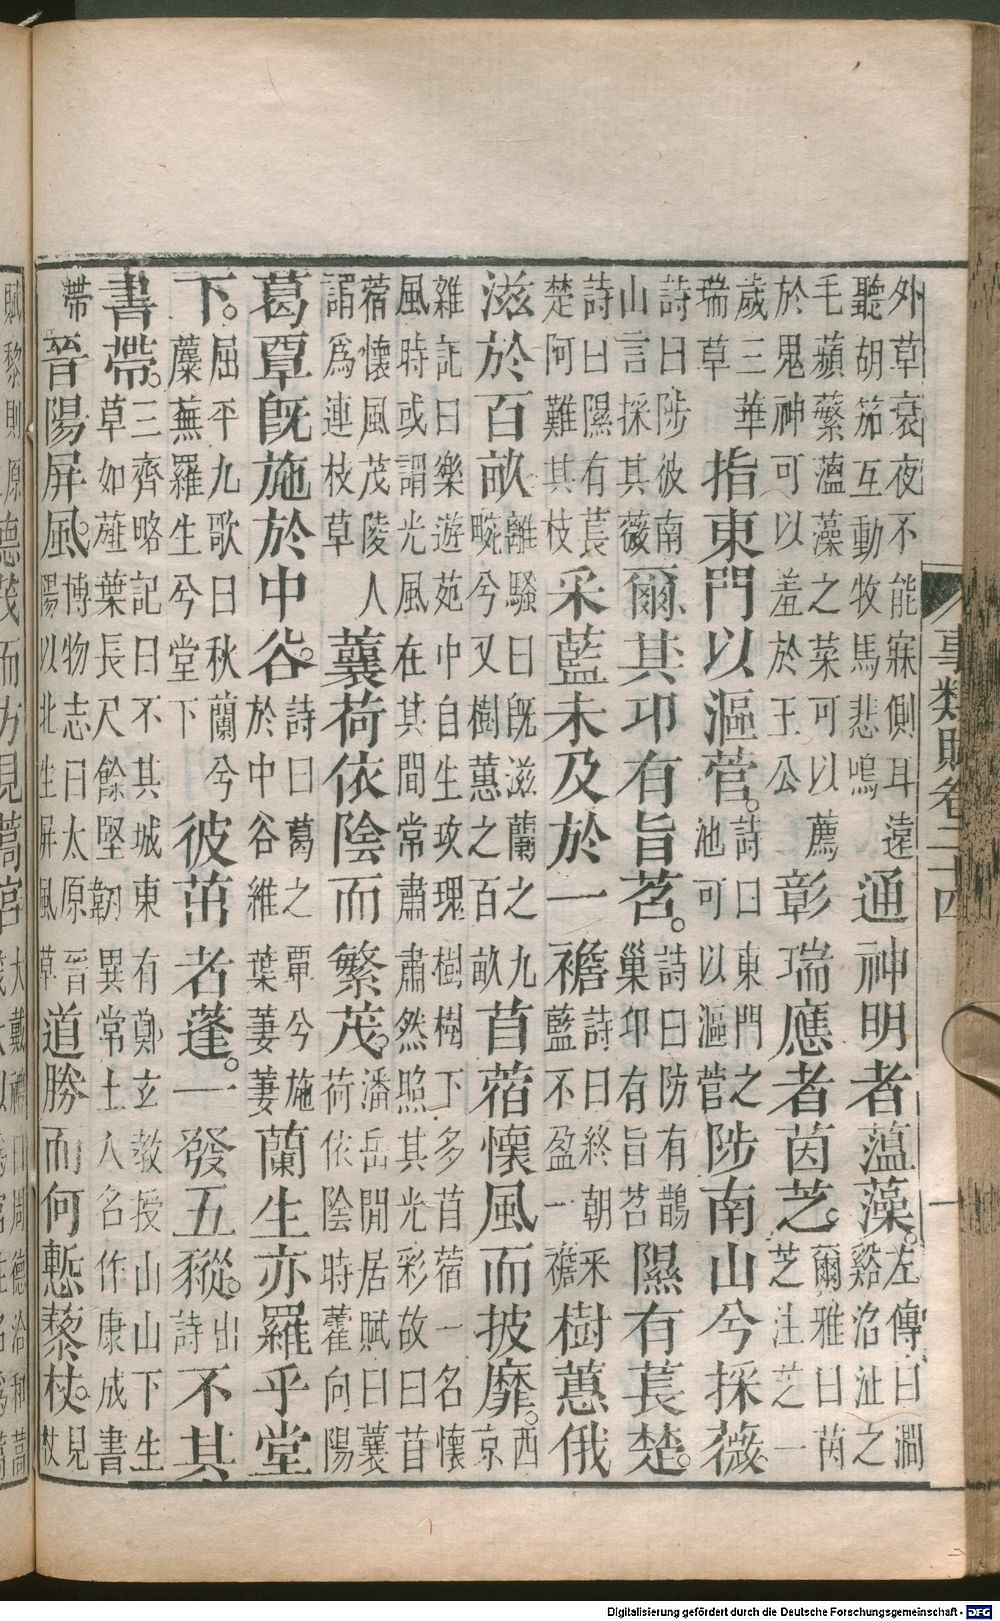 事類賦卷二十四
一
外草衰夜不能寐側耳遠
聽胡笳互動牧馬悲鳴
通神明者薀藻。
左傳曰澗
谿沼沚之
毛蘋蘩薀藻之菜可以薦
於鬼神可以羞於王公
彰瑞應者茵芝。
爾雅曰茵
芝注芝一
歲三華
瑞草
指東門以漚菅。
詩曰東門之
池可以漚菅
陟南山兮採薇。
詩曰陟彼南
山言採其薇
爾其卭有旨苕。
詩曰防有鵲
巢卭有旨苕
隰有萇楚。
詩曰隰有萇
楚阿難其枝
采藍未及於一襜
詩曰終朝采
藍不盈一襜
樹蕙俄
滋於百畝
離騷曰旣滋蘭之九
畹兮又樹蕙之百畝
苜蓿懷風而披靡。
西
京
雜記曰樂遊苑中自生玫瑰樹樹下多苜蓿一名懷
風時或謂光風風在其間常肅肅然照其光彩故曰苜
蓿懷風茂陵人
謂爲連枝草
蘘荷依陰而繁茂。
潘岳閒居賦曰蘘
荷依陰時藿向陽
葛覃旣施於中谷。
詩曰葛之覃兮施
於中谷維葉萋萋
蘭生亦羅乎堂
下。
屈平九歌曰秋蘭兮
蘼蕪羅生兮堂下
彼茁者蓬。一發五豵。
出
詩
不其
書帶。
三齊略記曰不其城東有鄭玄教授山山下生
草如薤葉長尺餘堅韌異常土人名作康成書
帶
晉陽屏風。
博物志曰太原晉
陽以北生屏風草
道勝而何慙藜杖。
見
杖
賦黎則原
德茂而方見蒿宮
大戴禮曰周德洽和蒿
Digitalisierung gefördert durch die Deutsche Forschungsgemeinschaft - DFG